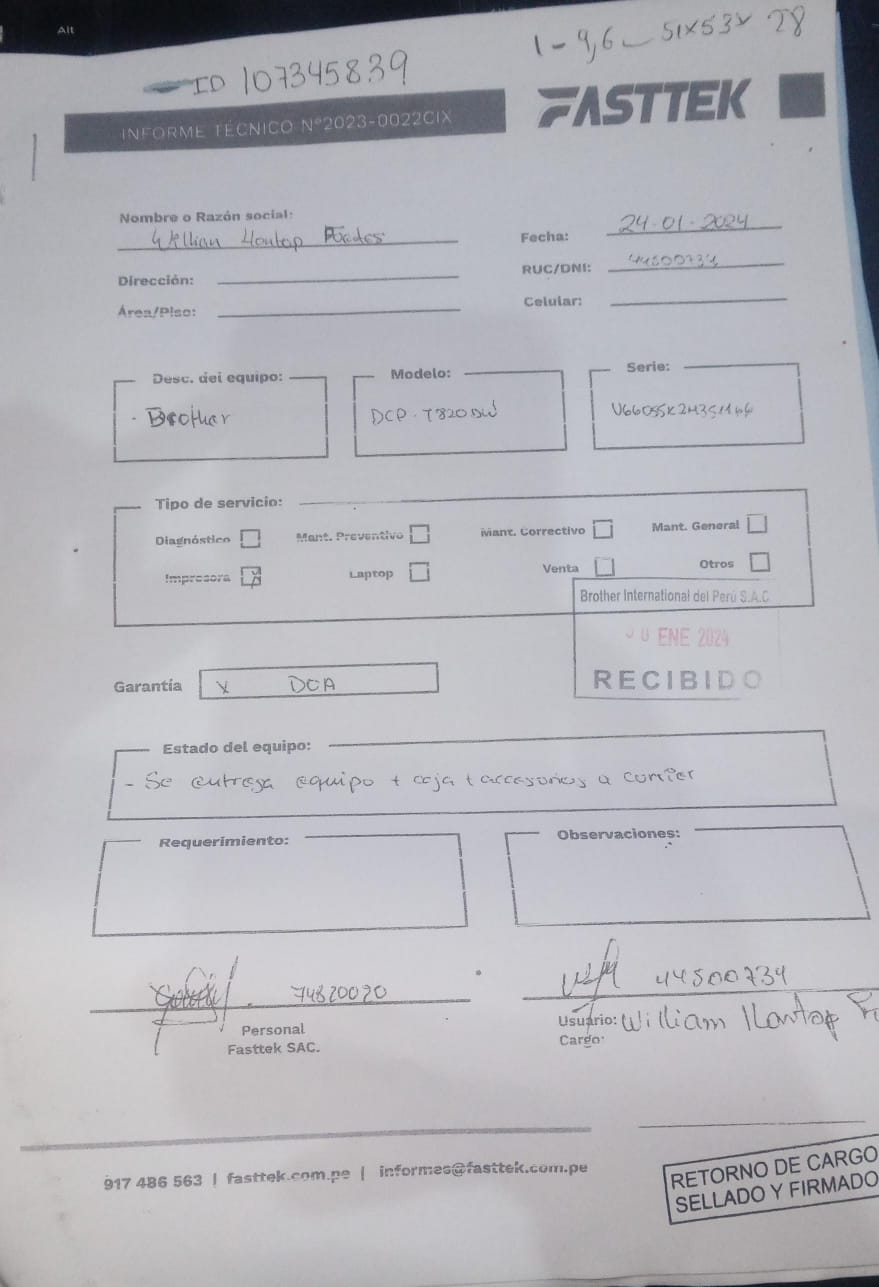 Alt
1 - 9,6 - 51x53x 28
ID 107345839
INFORME TÉCNICO Nº2023-0022CIX
FASTTEK
Nombre o Razón social:
Willian Llontop
Fecha: 24-01-2024
RUC/DNI: 44500734
Dirección:
Área/Piso:
Celular:
Desc. del equipo:
- Brother
Modelo:
DCP-T820DW
Serie:
Tipo de servicio:
Diagnóstico
Mant. Preventivo
Mant. Correctivo
Mant. General
Impresora X
Laptop
Venta
Otros
Brother International del Perú S.A.C
ENE 2024
RECIBIDO
Garantía X DOA
Estado del equipo:
- Se entrega equipo + caja + accesorios a courier
Requerimiento:
Observaciones:
74820020
44500734
Personal
Fasttek SAC.
Usuario: William Llontop
Cargo:
917 486 563 | fasttek.com.pe | informes@fasttek.com.pe
RETORNO DE CARGO
SELLADO Y FIRMADO